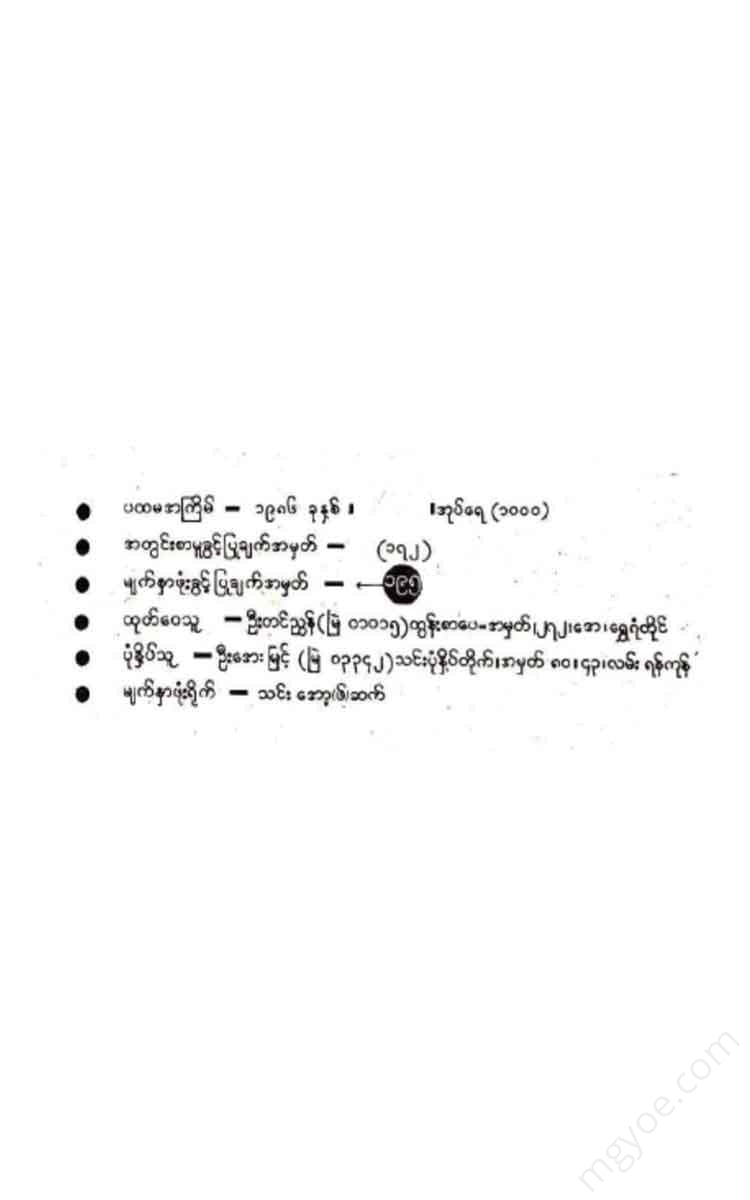 ● ပထမအကြိမ် — ၁၉၈၆ ခုနှစ် ။ ။အုပ်ရေ (၁၀၀၀)
● အတွင်းစာမူခွင့်ပြုချက်အမှတ် — (၁၇၂)
● မျက်နှာဖုံးခွင့်ပြုချက်အမှတ် — ←၁၉၅
● ထုတ်ဝေသူ — ဦးတင်ညွန့်(မြဲ ၀၁၀၁၅)ထွန်းစာပေ-အမှတ်၊၂၇၂၊အောရွှေဂုံတိုင်
● ပုံနှိပ်သူ — ဦးအေးမြင့် (မြဲ ၀၃၃၄၂)သင်းပုံနှိပ်တိုက်၊အမှတ် ၈၀၊၄၃၊လမ်း ရန်ကုန်
● မျက်နှာဖုံးရိုက် — သင်း အော့(ဖ်)ဆက်
mgyoe.com